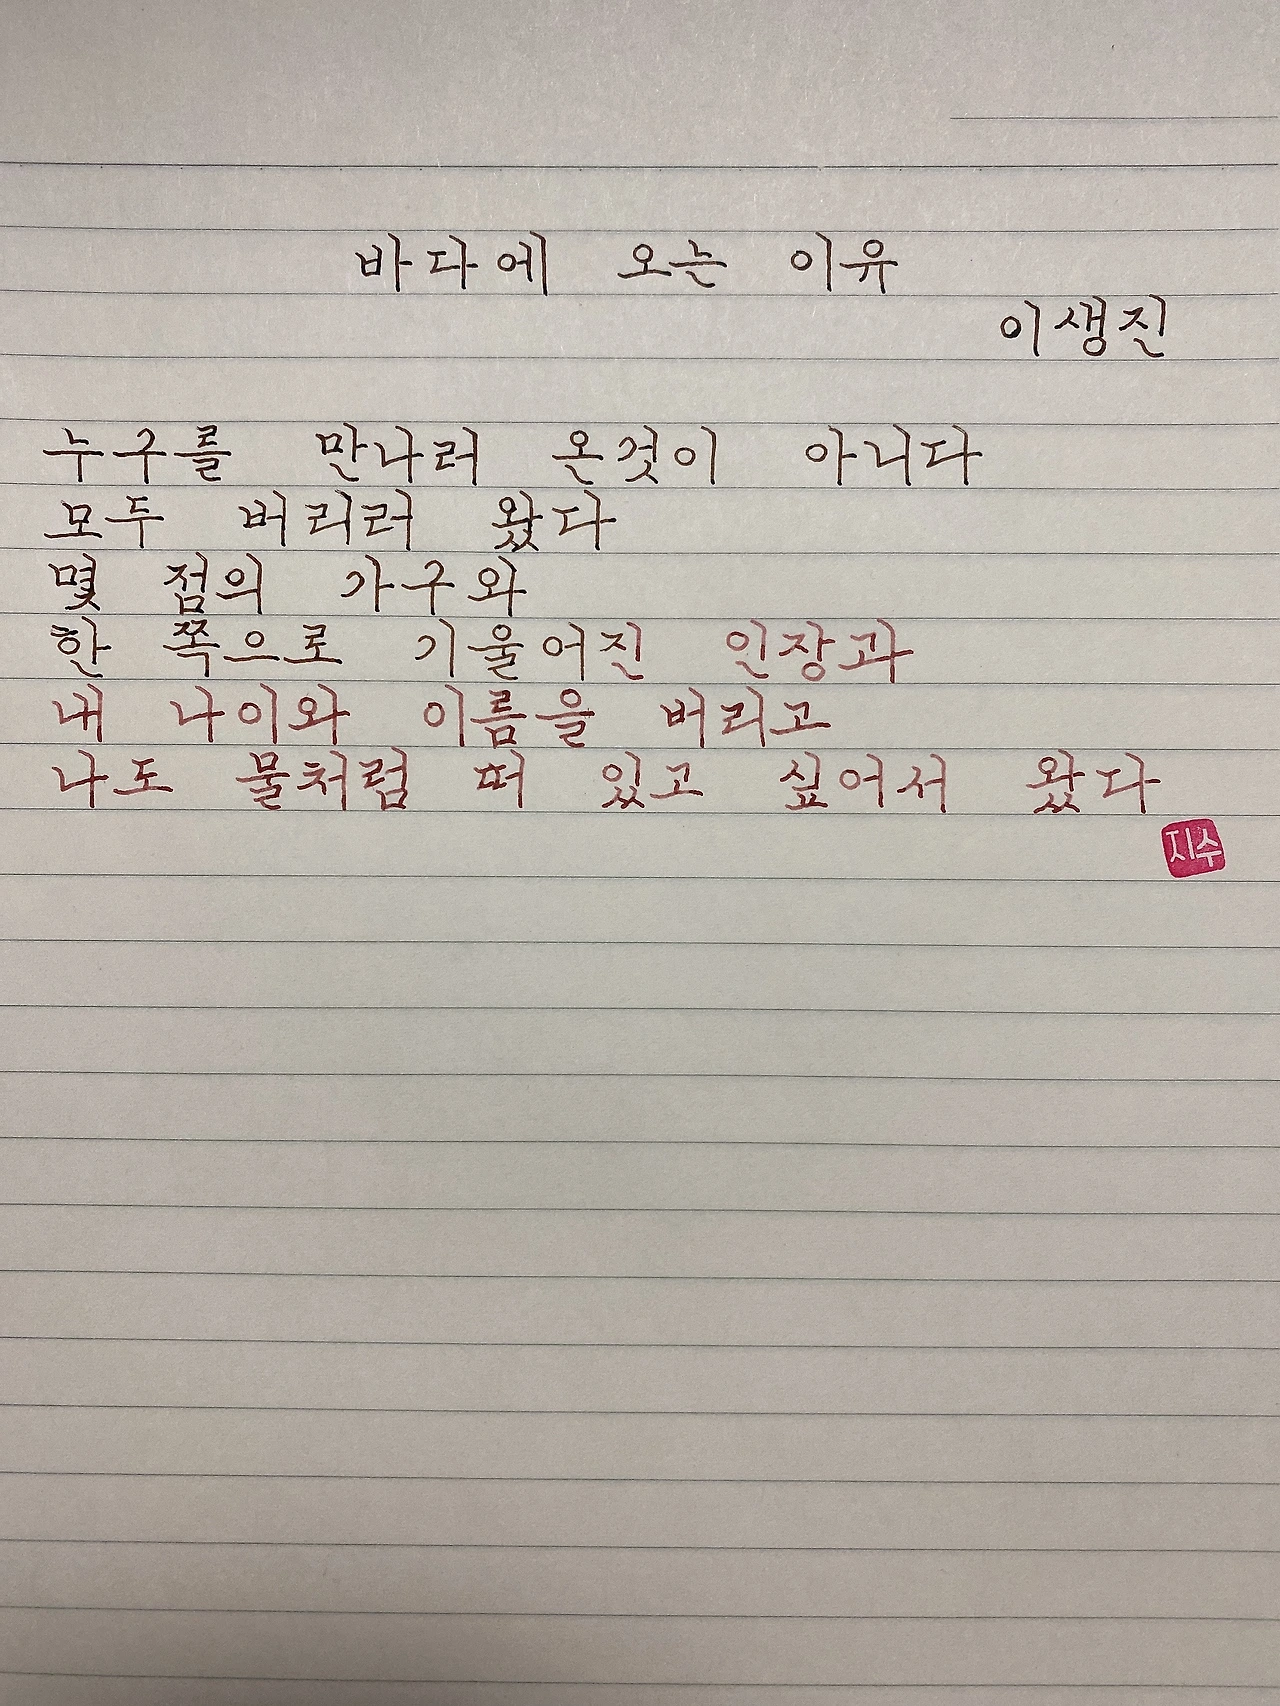 바다에 오는 이유
이생진
누구를 만나러 온것이 아니다
모두 버리러 왔다
몇 점의 가구와
한 쪽으로 기울어진 인장과
내 나이와 이름을 버리고
나도 물처럼 떠 있고 싶어서 왔다
지수